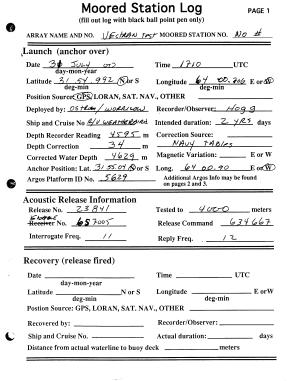 Moored Station Log
PAGE 1
(fill out log with black ball point pen only)
ARRAY NAME AND NO. VECTRAN TEST MOORED STATION NO. NO #
Launch (anchor over)
Date 31 JULY 00 Time 1710 UTC
day-mon-year
Latitude 31 54.992 N or S Longitude 64 00.706 E or W
deg-min deg-min
Position Source: GPS, LORAN, SAT. NAV., OTHER
Deployed by: OSTROM / WORRILOW Recorder/Observer: Hogg
Ship and Cruise No R/V WEATHERBIRD Intended duration: 2 YRS days
Depth Recorder Reading 4595 m Correction Source:
Depth Correction 34 m NAVY TABLES
Corrected Water Depth 4629 m Magnetic Variation: E or W
Anchor Position: Lat. N or S Long. 64 00.90 E or W
Argos Platform ID No. 5629 Additional Argos Info may be found
on pages 2 and 3.
Acoustic Release Information
Release No. 23841 Tested to 4000 meters
Receiver No. 7005 Release Command 634667
Interrogate Freq. 11 Reply Freq. 12
Recovery (release fired)
Date Time UTC
day-mon-year
Latitude N or S Longitude E or W
deg-min deg-min
Postion Source: GPS, LORAN, SAT. NAV., OTHER
Recovered by: Recorder/Observer:
Ship and Cruise No. Actual duration: days
Distance from actual waterline to buoy deck meters